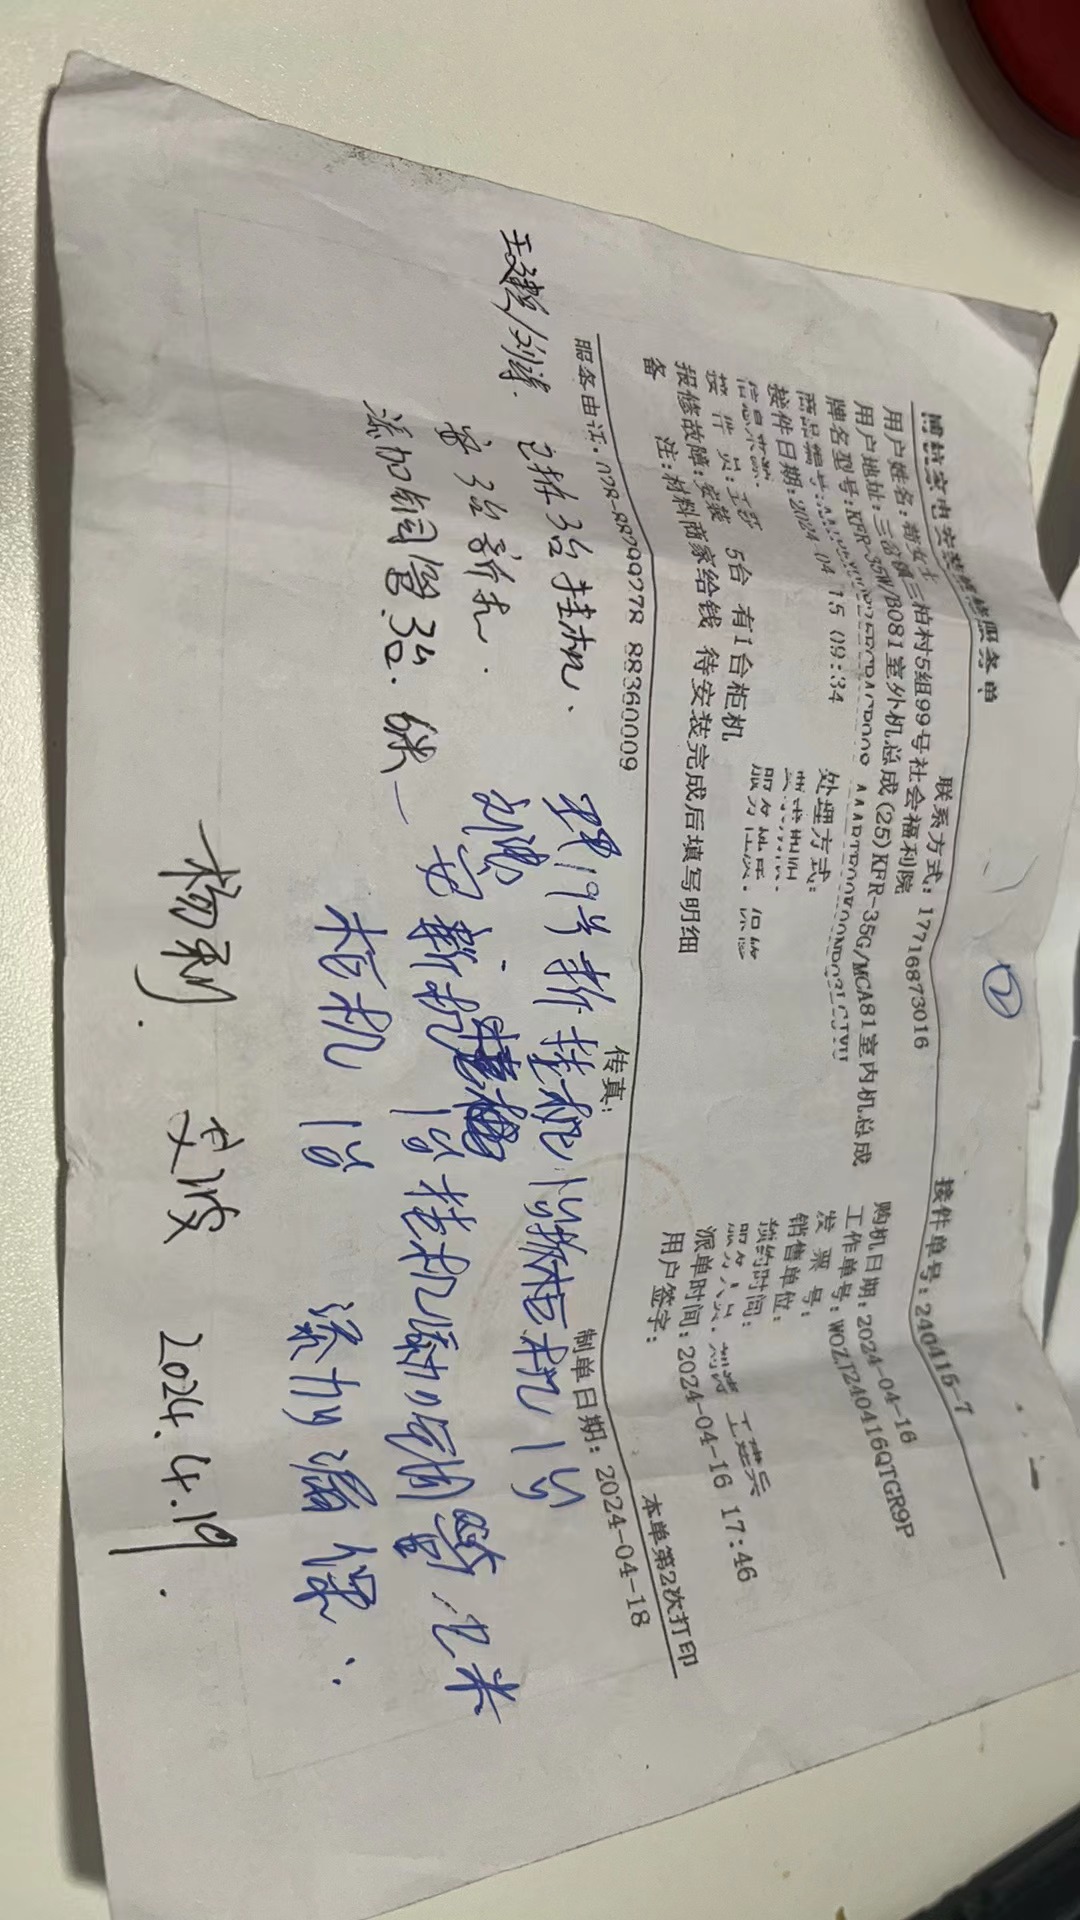 家电安装维修服务单
用户姓名: 联系方式: 17716873016 接件单号: 240415-7
用户地址: 三柏村5组99号社会福利院
牌名型号: KFR-35W/B081室外机总成(25)KFR-35G/MCA81室内机总成 购机日期: 2024-04-16
工作单号: WOZT240416QTGR9P
接件日期: 2024-04-15 09:34 处理方式: 发票号:
销售单位:
预约时间:
接件员: 王莎 服务性质: 保修 服务人员: 刘涛 王建兵
报修故障: 安装 5台 有1台柜机 派单时间: 2024-04-16 17:46
备注: 材料商家给钱 待安装完成后填写明细 用户签字:
本单第2次打印
服务电话: 028-88299278 88360009 传真: 制单日期: 2024-04-18
王建兵/刘涛. 已拆3台挂机.
安3台新机.
添加铜管3台. 6米
19号拆挂机1台拆柜机1台
安新机 1台挂机添加铜管 米
柜机 1台 添加漏保
杨利. 2024.4.19.